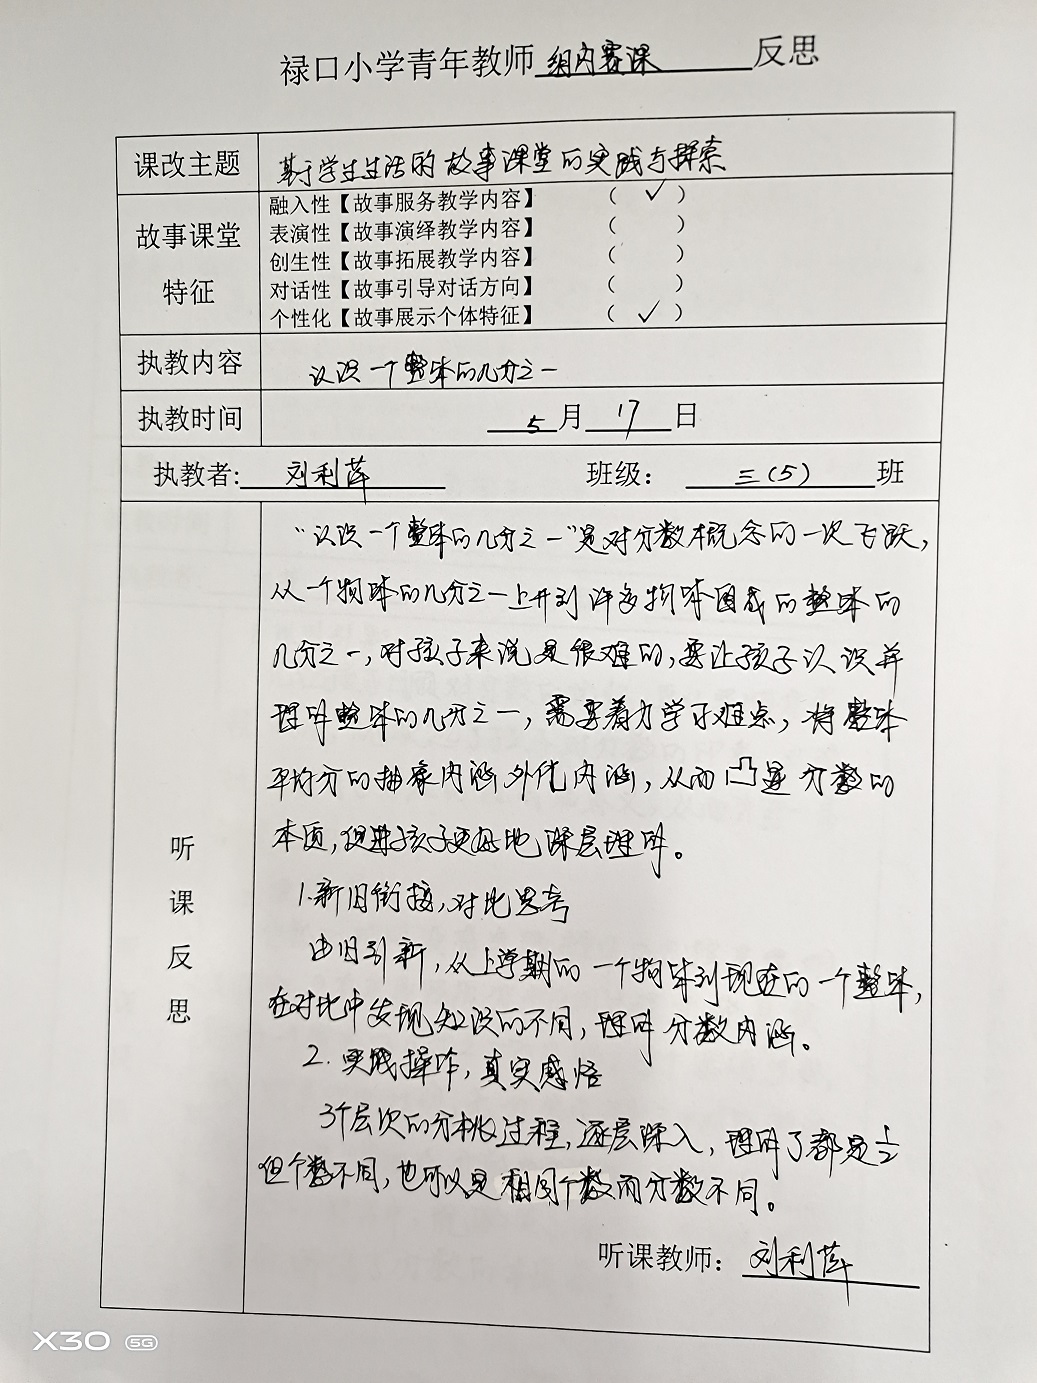 禄口小学青年教师 组内赛课 反思
课改主题 基于学生生活的故事课堂的实践与探索
故事课堂
特征
融入性【故事服务教学内容】 （ ✓ ）
表演性【故事演绎教学内容】 （ ）
创生性【故事拓展教学内容】 （ ）
对话性【故事引导对话方向】 （ ）
个性化【故事展示个体特征】 （ ✓ ）
执教内容 认识一个整体的几分之一
执教时间 5月17日
执教者: 刘利萍 班级： 三(5) 班
听
课
反
思
“认识一个整体的几分之一”是对分数概念的一次飞跃，
从一个物体的几分之一上升到许多物体围成的整体的
几分之一，对孩子来说是很难的，要让孩子认识并
理解整体的几分之一，需要着力学习难点，将整体
平均分的抽象内涵外化内涵，从而凸显分数的
本质，促进孩子更好地深层理解。
1.新旧衔接，对比思考
由旧引新，从上学期的一个物体到现在的一个整体，
在对比中发现知识的不同，理解分数内涵。
2.实践操作，真实感悟
3个层次的分桃过程，逐层深入，理解了都是1/2
但个数不同，也可以是相同个数而分数不同。
听课教师： 刘利萍
X30 5G